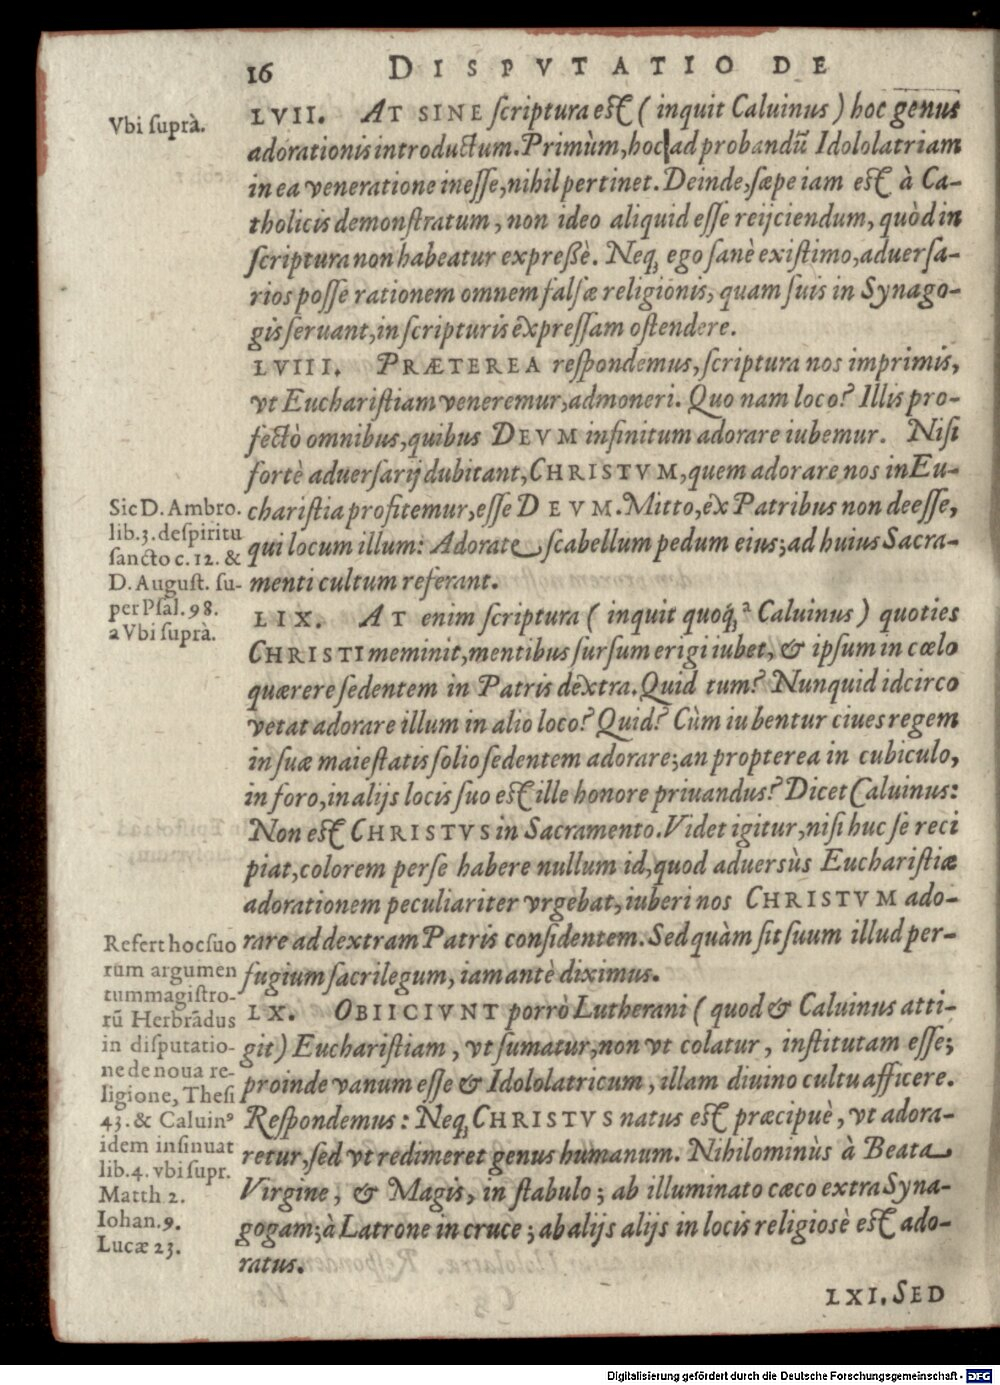 16 DISPVTATIO DE
Vbi suprà.
LVII. AT SINE scriptura est (inquit Caluinus) hoc genus
adorationis introductum. Primùm, hoc ad probandũ Idololatriam
in ea veneratione inesse, nihil pertinet. Deinde, sæpe iam est à Ca-
tholicis demonstratum, non ideo aliquid esse reijciendum, quòd in
scriptura non habeatur expreßè. Neq; ego sanè existimo, aduersa-
rios posse rationem omnem falsæ religionis, quam suis in Synago-
gis seruant, in scripturis expressam ostendere.
LVIII. PRÆTEREA respondemus, scriptura nos imprimis,
vt Eucharistiam veneremur, admoneri. Quo nam loco? Illis pro-
fectò omnibus, quibus DEVM infinitum adorare iubemur. Nisi
fortè aduersarij dubitant, CHRISTVM, quem adorare nos in Eu-
charistia profitemur, esse DEVM. Mitto, ex Patribus non deesse,
qui locum illum: Adorate scabellum pedum eius; ad huius Sacra-
menti cultum referant.
Sic D. Ambro.
lib. 3. de spiritu
sancto c. 12. &
D. August. su-
per Psal. 98.
a Vbi suprà.
LIX. AT enim scriptura (inquit quoq; ª Caluinus) quoties
CHRISTI meminit, mentibus sursum erigi iubet, & ipsum in cœlo
quærere sedentem in Patris dextra. Quid tum? Nunquid idcirco
vetat adorare illum in alio loco? Quid? Cùm iubentur ciues regem
in suæ maiestatis solio sedentem adorare; an propterea in cubiculo,
in foro, in alijs locis suo est ille honore priuandus? Dicet Caluinus:
Non est CHRISTVS in Sacramento. Videt igitur, nisi huc se reci
piat, colorem per se habere nullum id, quod aduersùs Eucharistiæ
adorationem peculiariter vrgebat, iuberi nos CHRISTVM ado-
rare ad dextram Patris considentem. Sed quàm sit suum illud per-
fugium sacrilegum, iam antè diximus.
LX. OBIICIVNT porrò Lutherani (quod & Caluinus atti-
git) Eucharistiam, vt sumatur, non vt colatur, institutam esse;
proinde vanum esse & Idololatricum, illam diuino cultu afficere.
Respondemus: Neq; CHRISTVS natus est præcipuè, vt adora-
retur, sed vt redimeret genus humanum. Nihilominùs à Beata
Virgine, & Magis, in stabulo; ab illuminato cæco extra Syna-
gogam; à Latrone in cruce; ab alijs alijs in locis religiosè est ado-
ratus.
Refert hoc suo
rum argumen
tum magistro-
rũ Herbrãdus
in disputatio-
ne de noua re-
ligione, Thesi
43. & Caluinꝰ
idem insinuat
lib. 4. vbi supr.
Matth 2.
Iohan. 9.
Lucæ 23.
LXI. SED
Digitalisierung gefördert durch die Deutsche Forschungsgemeinschaft - DFG